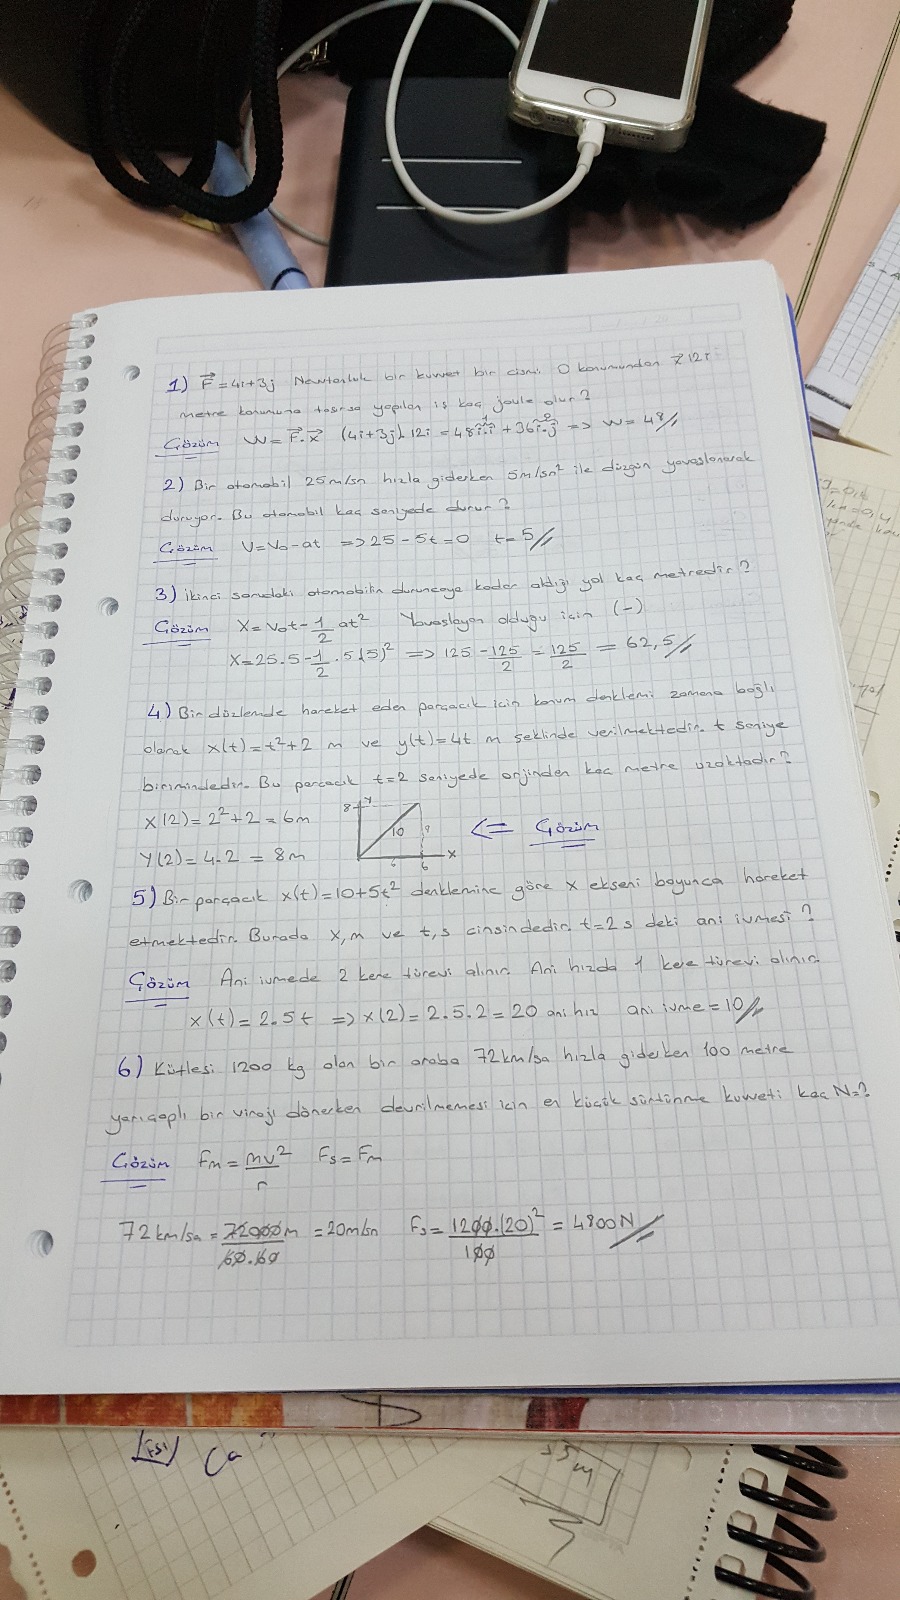 1) F⃗ = 4i+3j Newtonluk bir kuvvet bir cismi O konumundan x⃗ 12i
metre konumuna taşırsa yapılan iş kaç joule olur?
Çözüm W = F⃗.x⃗ (4i+3j).12i = 48i.i + 36i.j => W = 48//
2) Bir otomobil 25m/sn hızla giderken 5m/sn² ile düzgün yavaşlanarak
duruyor. Bu otomobil kaç saniyede durur?
Çözüm V=V₀-at => 25-5t=0 t=5//
3) İkinci sorudaki otomobilin duruncaya kadar aldığı yol kaç metredir?
Çözüm X=V₀t-1/2 at² Yavaşlayan olduğu için (-)
X=25.5-1/2.5.(5)² => 125-125/2=125/2 = 62,5//
4) Bir düzlemde hareket eden parçacık için konum denklemi zamana bağlı
olarak x(t)=t²+2 m ve y(t)=4t m şeklinde verilmektedir. t saniye
birimindedir. Bu parçacık t=2 saniyede orjinden kaç metre uzaktadır?
X(2)=2²+2=6m 8 y 10 8 <= Çözüm
Y(2)=4.2 = 8m 6 6 x
5) Bir parçacık x(t)=10+5t² denklemine göre x ekseni boyunca hareket
etmektedir. Burada x,m ve t,s cinsindedir. t=2 s deki ani ivmesi?
Çözüm Ani ivmede 2 kere türevi alınır. Ani hızda 1 kere türevi alınır.
x(t)=2.5t => x(2)=2.5.2=20 ani hız ani ivme=10//
6) Kütlesi 1200 kg olan bir araba 72km/sa hızla giderken 100 metre
yarıçaplı bir virajı dönerken devrilmemesi için en küçük sürtünme kuvveti kaç N=?
Çözüm Fm = mv²/r Fs=Fm
72km/sa = 72000m/60.60 = 20m/sn Fs = 1200.(20)²/100 = 4800N//